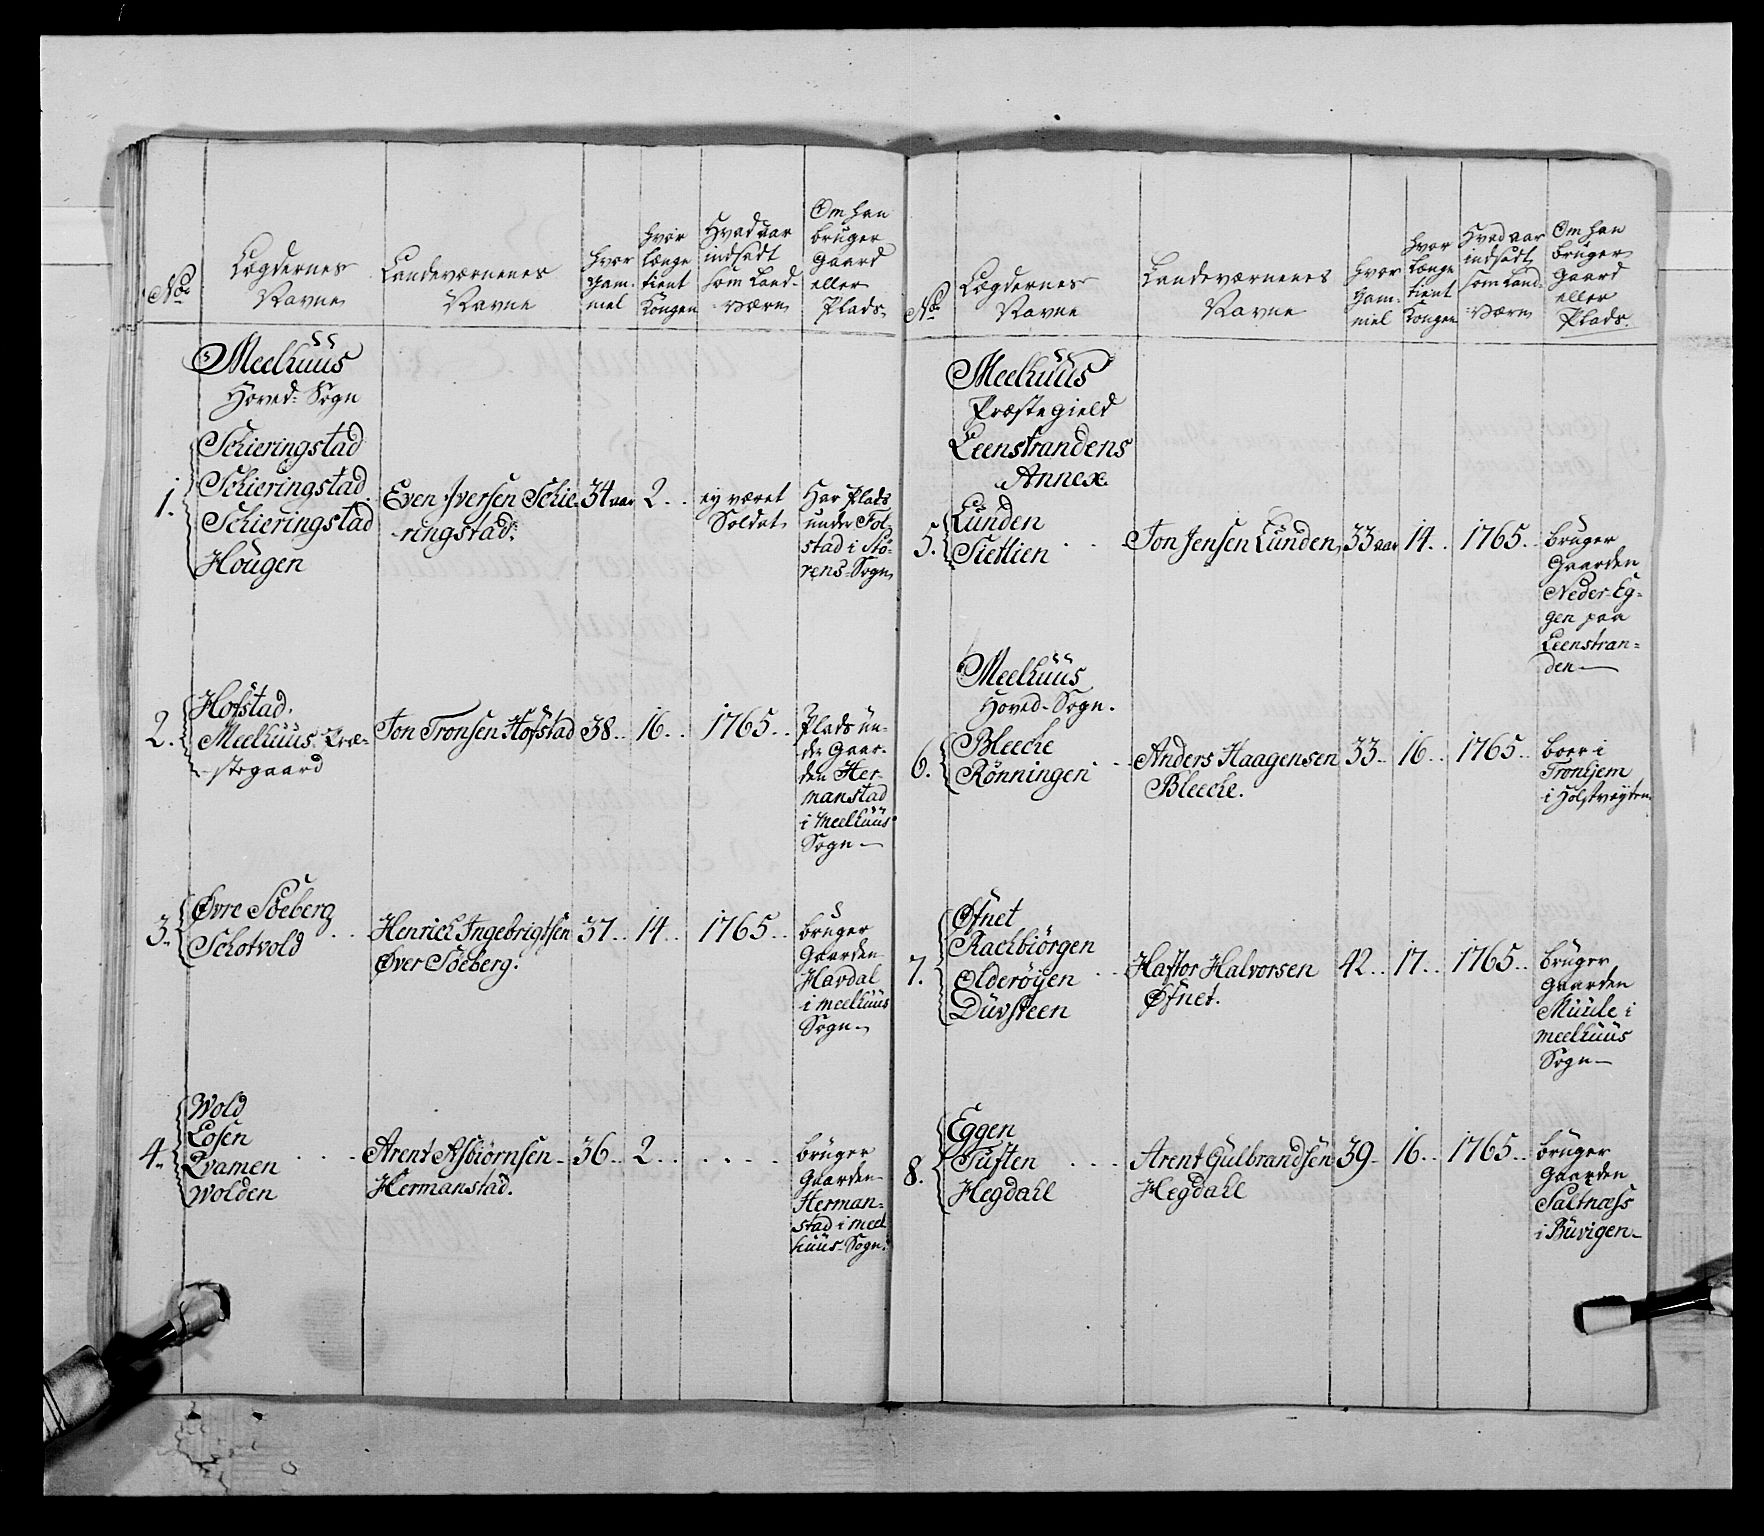 No.
Lægdernes
Navne
Landeværnenes
Navne
hvor
gam-
mel
hvor
længe
tient
Kongen
Hvad aar
indsadt
som Land-
værn
Om han
bruger
Gaard
eller
Plads
Meelhuus
Hoved-Sogn
1.
Schieringstad
Schieringstad
Schieringstad
Hougen
Even Iversen Schie-
ringstad.
34 aar
2..
ey været
Soldat
Har Plads
under Fol-
stad i Stö-
rens-Sogn
2.
Hofstad.
Meelhuus Præ-
stegaard
Jon Tronsen Hofstad
38..
16..
1765..
Plads un-
der Gaar-
den Her-
manstad
i Meelhuus
Sogn
3.
Øvre Söeberg
Schotvold
Henrich Ingebrigtsen
Øver Söeberg.
37..
14..
1765..
bruger
Gaarden
Havdal
i Meelhuus
Sogn
4.
Wold
Losen
Qvamen
Wolden
Arent Asbiörnsen
Hermanstad.
36..
2..
bruger
Gaarden
Herman-
stad i Meel
huus-Sogn.
No.
Lægdernes
Navne
Landeværnenes
Navne
hvor
gam-
mel
hvor
længe
tient
Kongen
Hvad aar
indsadt
som Land-
værn
Om han
bruger
Gaard
eller
Plads.
Meelhuus
Præstegield
Leenstrandens
Annex.
5.
Lunden
Sietlien
Jon Jensen Lunden
33 aar
14..
1765..
bruger
Gaarden
Neder-Eg-
gen paa
Leenstran-
den
Meelhuus
Hoved-Sogn.
6.
Bleeche
Rönningen
Anders Haagensen
Bleeche.
33..
16..
1765..
boer i
Tronhjem
i Holstvejten
7.
Øfnet
Rachbiörgen
Olderöyen
Duvsteen
Haftor Halvorsen
Øfnet.
42..
17..
1765..
bruger
Gaarden
Muule i
Meelhuus
Sogn
8.
Eggen
Tuften
Hegdahl
Arent Gulbrandsen
Hegdahl
39..
16..
1765..
bruger
Gaarden
Saltnæss
i Buvigen